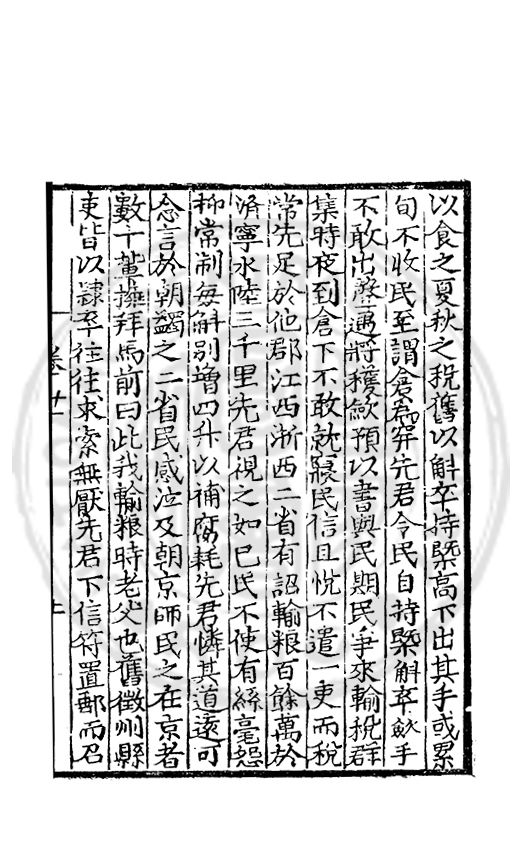 以食之夏秋之稅舊以斛卒持槩高下出其手或累
旬不收民至謂倉為穽先君令民自持槩斛卒斂手
不敢出聲遇將穫斂預以書與民期民爭來輸稅群
集時夜到倉下不敢就寢民信且悅不遣一吏而稅
常先足於他郡江西浙西二省有詔輸粮百餘萬於
濟寧水陸三千里先君視之如己民不使有絲毫怨
柳常制每斛別增四升以補腐耗先君憐其道遠可
念言於朝蠲之二省民感泣及朝京師民之在京者
數千輩擁拜馬前曰此我輸粮時老父也舊徵州縣
吏皆以隸卒往往求索無厭先君下信符置郵而召
卷廿一
上